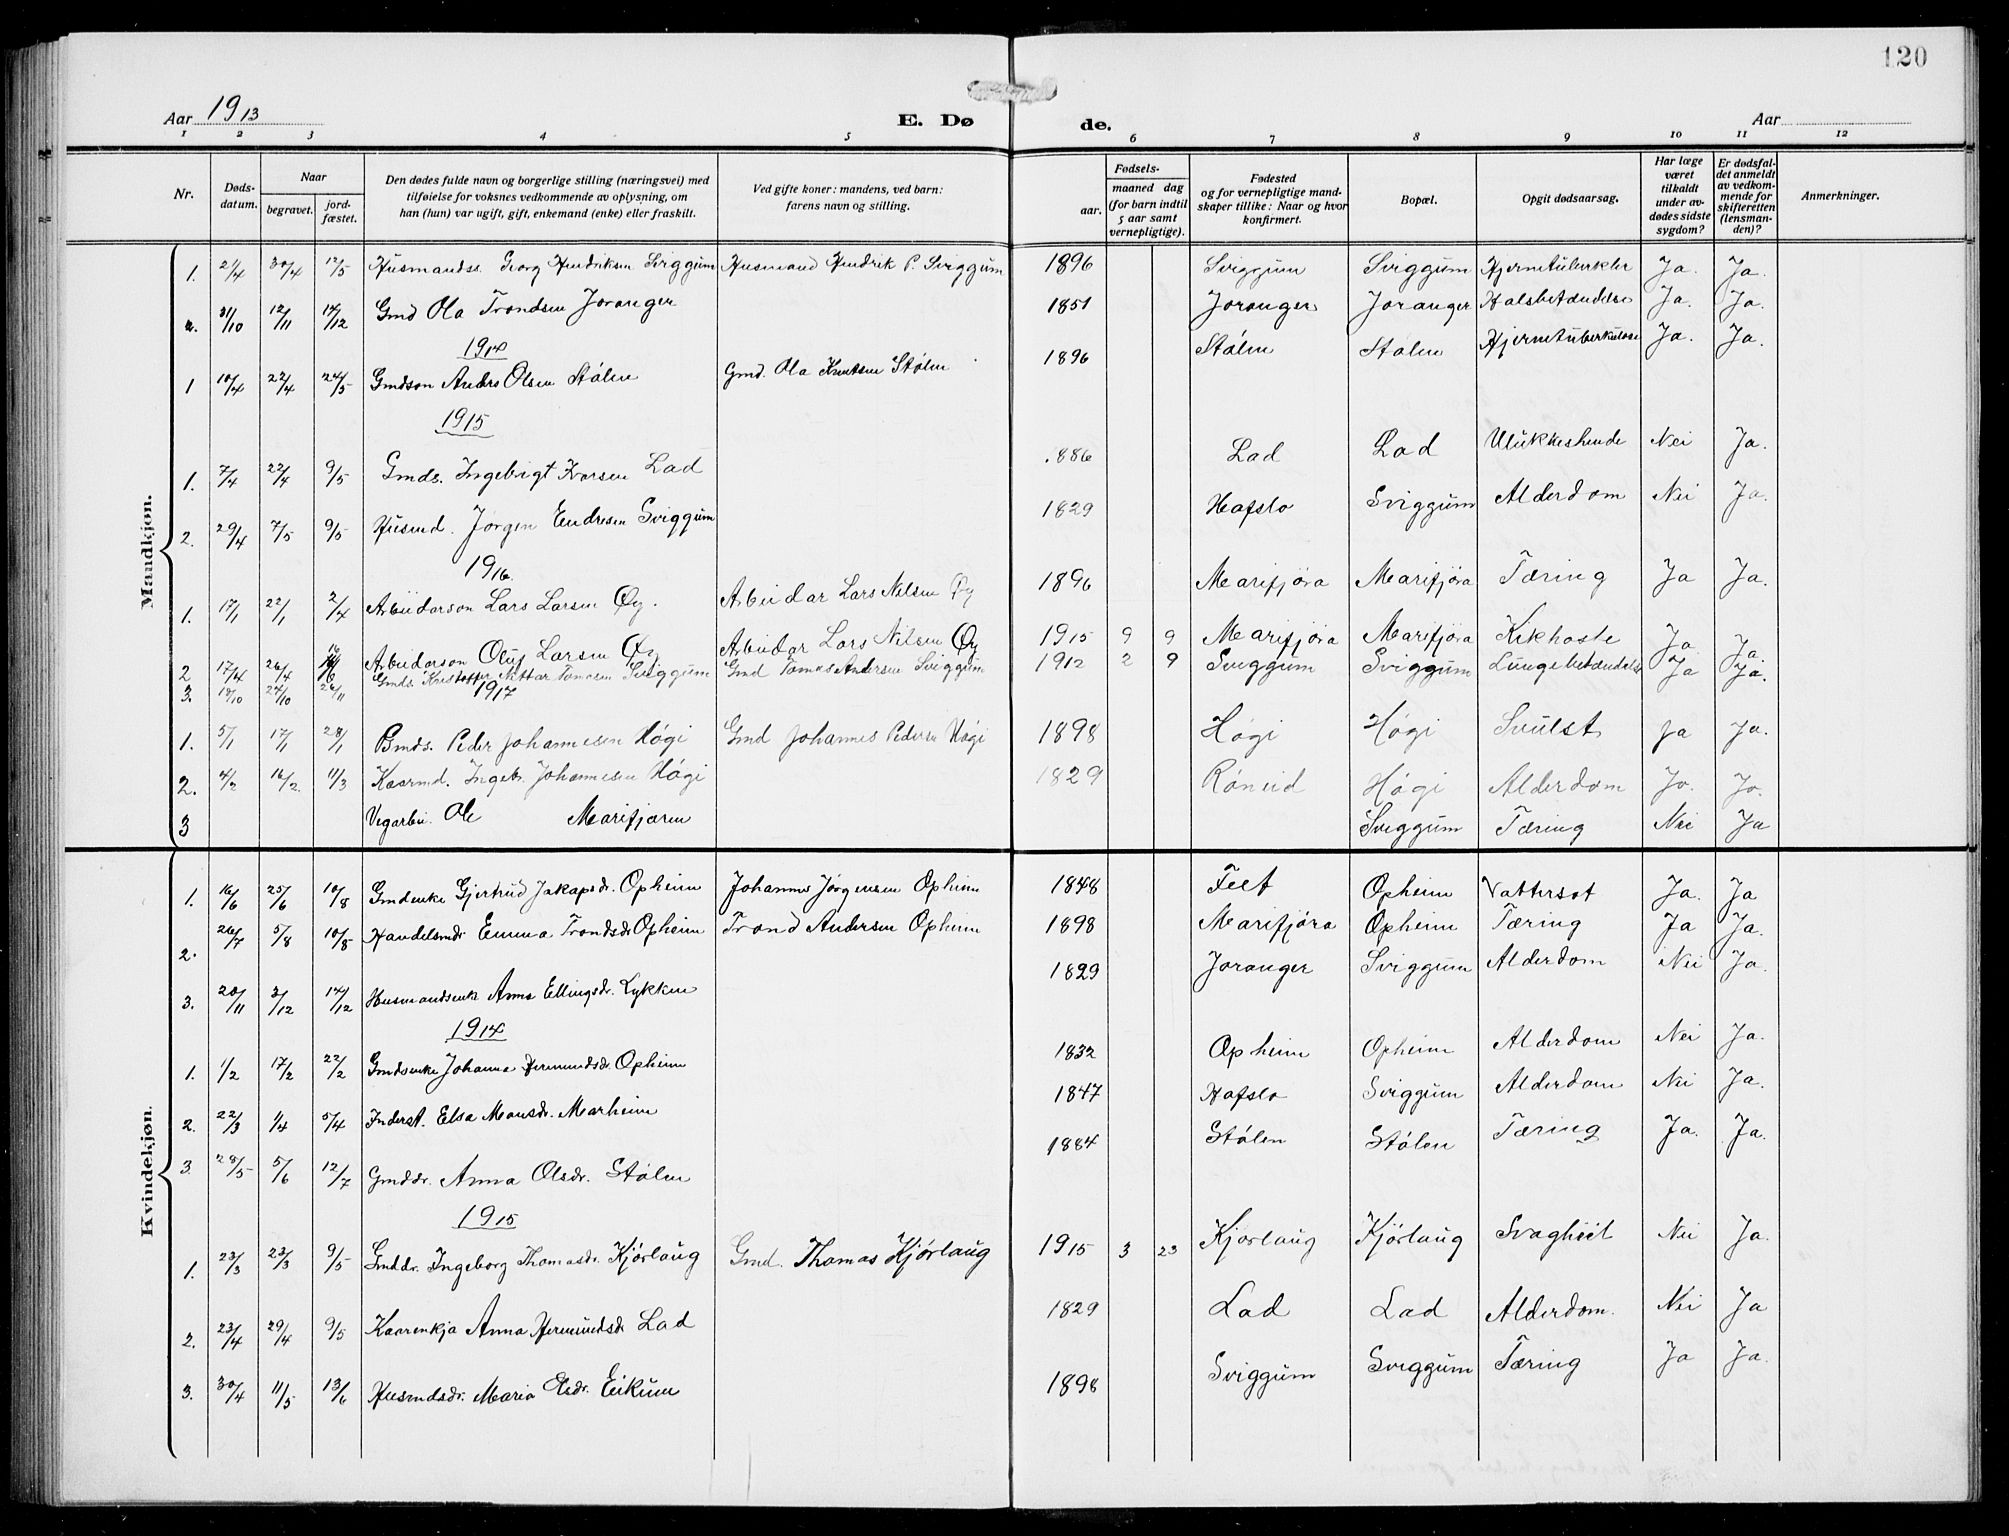 120
Aar 1913 E. Døde. Aar
1 2 3 4 5 6 7 8 9 10 11 12
Nr. Døds-datum. Naar begravet. jord-fæstet. Den dødes fulde navn og borgerlige stilling (næringsvei) med tilføielse for voksnes vedkommende av oplysning, om han (hun) var ugift, gift, enkemand (enke) eller fraskilt. Ved gifte koner: mandens, ved barn: farens navn og stilling. Fødsels- aar. maaned dag (for barn indtil 5 aar samt vernepligtige). Fødested og for vernepligtige mandskaper tillike: Naar og hvor konfirmert. Bopæl. Opgit dødsaarsag. Har læge været tilkaldt under avdødes sidste sygdom? Er dødsfaldet anmeldt av vedkommende for skifteretten (lensmanden)? Anmerkninger.
Mandkjøn.
1. 21/4 30/4 12/5 Husmandss. Georg Hendriksen Sviggum Husmand Hendrik P. Sviggum 1896 Sviggum Sviggum Hjernetuberkler Ja. Ja.
2. 31/10 12/11 14/12 Gmd Ola Trondsen Joranger 1851 Joranger Joranger Halsbetændelse Ja. Ja.
1914
1 10/4 22/4 24/5 Gmdson Anders Olsen Stólen Gmd. Ola Knutsen Stólen 1896 Stólen Stólen Hjernetuberkulose Ja. Ja.
1915
1. 7/4 22/4 9/5 Gmds. Ingebrigt Ivarsen Lad 1886 Lad Lad Ulukkeshende Nei Ja.
2. 29/4 7/5 9/5 Husmd. Jørgen Endresen Sviggum 1829 Hafslo Sviggum Alderdom Nei Ja.
1916.
1. 17/1 22/1 2/4 Arbeidarson Lars Larsen Øy. Arbeidar Lars Nilsen Øy 1896 Marifjøra Marifjøra Tæring Ja Ja.
2 17/4 26/4 Arbeidarson Oluf Larsen Øy Arbeidar Lars Nilsen Øy 1915 9 9 Marifjøra Marifjøra Kikhoste Ja Ja.
3. 18/10 24/10 26/11 Gmds. Kristoffer Tomasen Sviggum Gmd Tomas Andersen Sviggum 1912 2 9 Sviggum Sviggum Lungebetændelse Ja Ja.
1917
1. 5/1 17/1 28/1 Bmds. Peder Johannesen Høgi Gmd Johannes Pedersen Høgi 1898 Høgi Høgi Svulst Ja Ja.
2. 4/2 16/2 11/3 Kaarmd. Ingebr. Johannesen Høgi 1829 Róneid Høgi Alderdom Ja. Ja.
3 Vegarbei. Ole Marifjæren Sviggum Tæring Nei Ja
Kvindekjøn.
1. 16/6 25/6 10/8 Gmdenke Gjertrud Jakopsdr. Opheim Johannes Jørgensen Opheim 1848 Feet Opheim Vattersot Ja. Ja
2. 26/7 5/8 10/8 Handelsmdr. Emma Trondsdr Opheim Trond Andersen Opheim 1898 Marifjóra Opheim Tæring Ja Ja.
3. 20/11 3/12 14/12 Husmandsenk Anna Ellingsdr. Lykken 1829 Joranger Sviggum Alderdom Nei Ja.
1914
1. 1/2 17/2 22/2 Gmdsenke Johanna Hermundsdr Opheim 1832 Opheim Opheim Alderdom Nei Ja.
2. 22/3 1/4 5/4 Inderst. Elsa Monsdr. Marheim 1847 Hafslo Sviggum Alderdom Nei Ja.
3. 28/5 5/6 12/7 Gmddr. Anna Olsdr. Stólen 1884 Stólen Stólen Tæring Ja. Ja.
1915
1. 23/3 23/3 9/5 Gmddr. Ingeborg Thomasdr. Kjórlaug Gmd. Thomas Kjórlaug 1915 3 23 Kjórlaug Kjórlaug Svagheit Nei Ja.
2. 23/4 29/4 9/5 Kaarenkja Anna Hermundsdr Lad 1829 Lad Lad Alderdom. Nei Ja
3. 30/4 11/5 13/6 Husmdsdr. Maria Olsdr. Eikum 1898 Sviggum Sviggum Tæring Ja Ja.